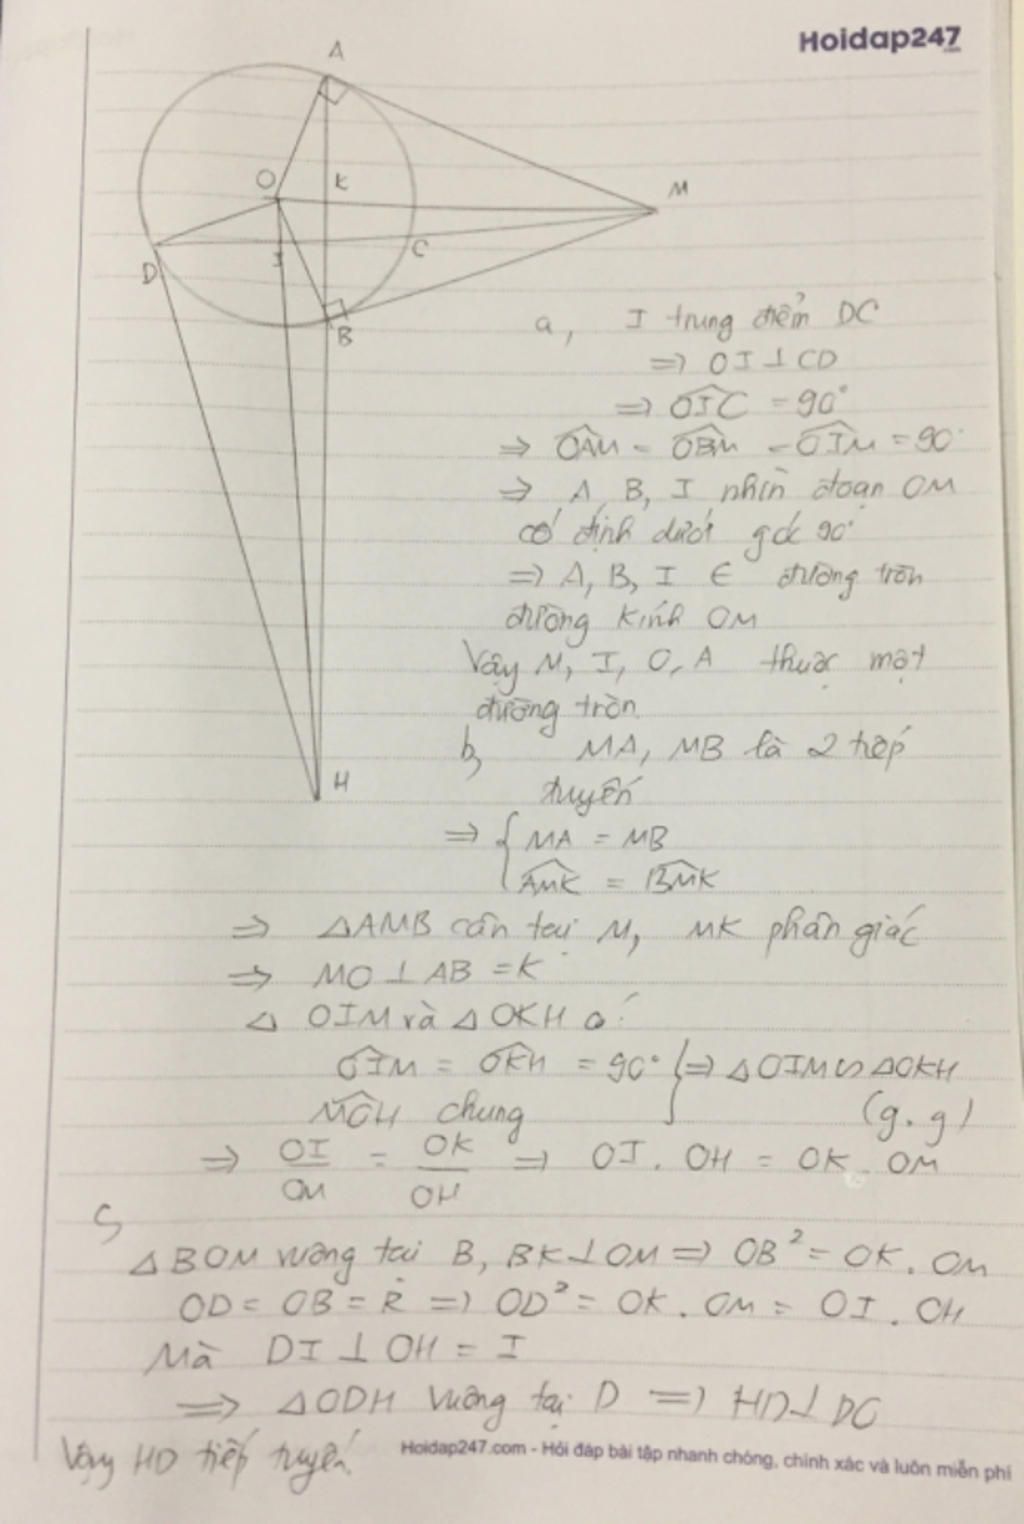 Hoidap247
.com
A
O
K
M
D
I
C
B
H
a, I trung điểm DC
=> OI ⊥ CD
=> OIC = 90°
=> OAM = OBM = OIM = 90°
=> A, B, I nhìn đoạn OM
cố định dưới góc 90°
=> A, B, I ∈ đường tròn
đường kính OM
Vậy M, I, O, A thuộc một
đường tròn
b, MA, MB là 2 tiếp
tuyến
=> { MA = MB
AMK = BMK
=> ΔAMB cân tại M, MK phân giác
=> MO ⊥ AB = K
Δ OIM và Δ OKH có:
OIM = OKH = 90° } => ΔOIM ∽ ΔOKH
MOH chung (g.g)
=> OI/OM = OK/OH => OI . OH = OK . OM
c,
ΔBOM vuông tại B, BK ⊥ OM => OB² = OK . OM
OD = OB = R => OD² = OK . OM = OI . OH
Mà DI ⊥ OH = I
=> ΔODH vuông tại D => HD ⊥ DO
Vậy HD tiếp tuyến
Hoidap247.com - Hỏi đáp bài tập nhanh chóng, chính xác và luôn miễn phí